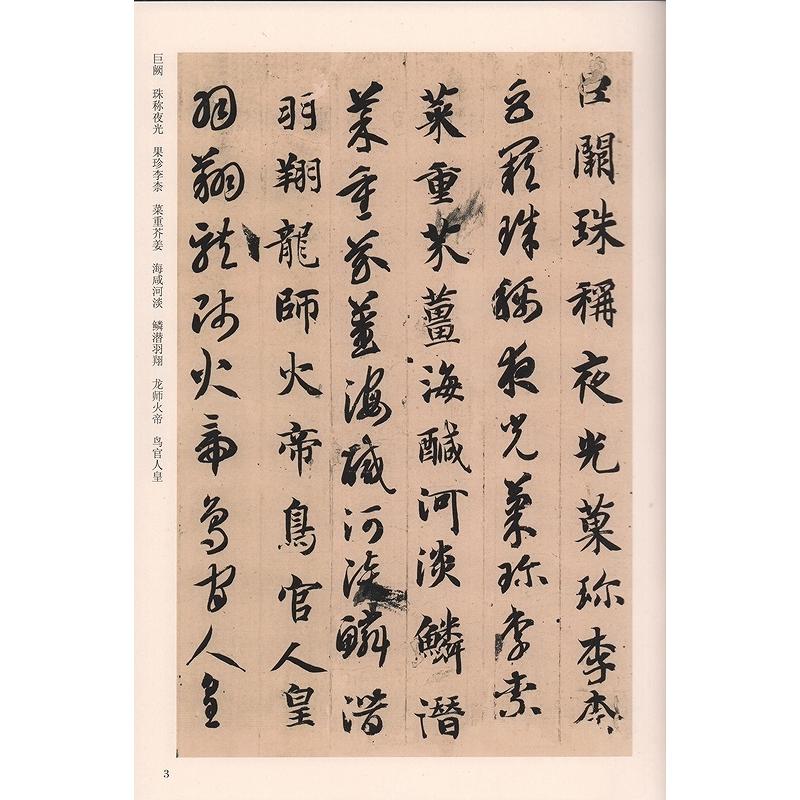 巨闕珠稱夜光菓珎李柰
巨闕珠稱夜光菓珎李柰
菜重芥薑海醎河淡鱗潛
菜重芥薑海醎河淡鱗潛
羽翔龍師火帝鳥官人皇
羽翔龍師火帝鳥官人皇
巨阙 珠称夜光 果珍李柰 菜重芥姜 海咸河淡 鳞潜羽翔 龙师火帝 鸟官人皇
3